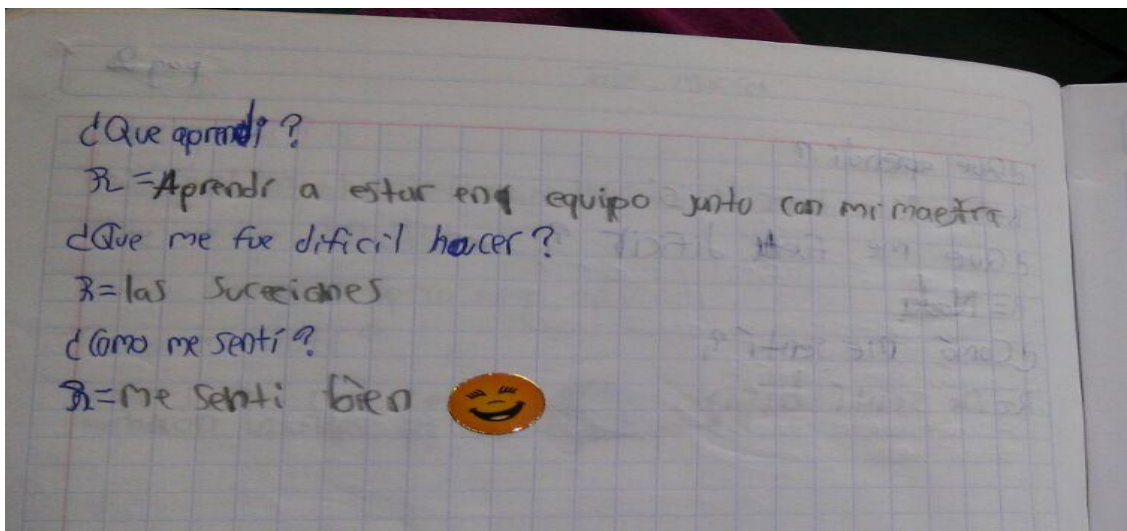 ¿Que aprendi?
R=Aprendi a estar en equipo junto con mi maestra
¿Que me fue dificil hacer?
R=las Sucesiones
¿Como me sentí?
R=me senti bien